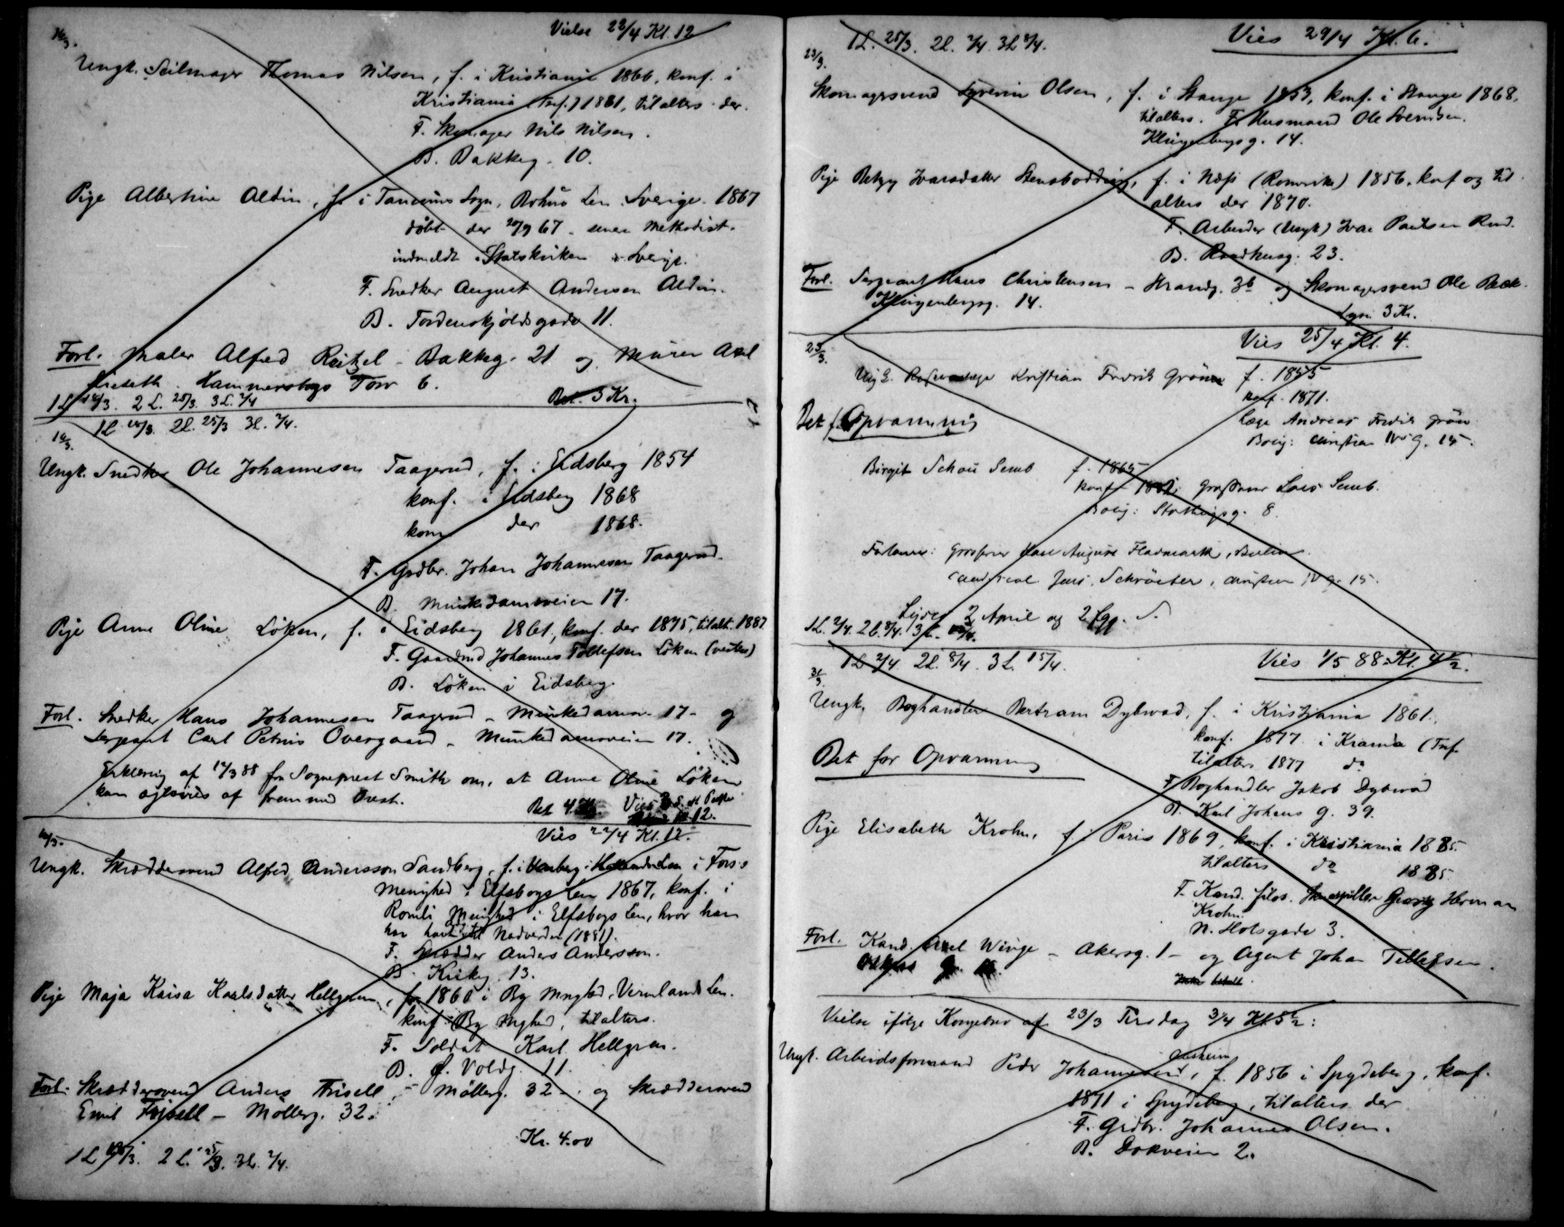 16/3. Vielse 22/4 Kl. 12
Ungk. Seilmager Thomas Nilsen, f. i Kristiania 1866, konf. i
Kristiania (Tref.) 1881, til alters der.
F. Skomager Nils Nilsen.
B. Bakkeg. 10.
Pige Albertine Aldin, f. i Tanums Sogn, Bohus Len. Sverige. 1867
døbt der 20/9 67 - senere Methodist.
indmeldt i Statskirken i Sverige.
F. Snedker August Andersen Aldin.
B. Tordenskjoldsgade 11.
Forl. Maler Alfred - Bakkeg. 21 og Murer Axel
Hammersborgs Torv 6.
1L 18/3. 2L. 25/3. 3L. 2/4 Bet. 3 Kr.
1L 18/3. 2L. 25/3 3L. 2/4.
16/3.
Ungk. Snedker Ole Johannesen Taagerud, f. i Eidsberg 1854
konf. i Eidsberg 1868
kom. der 1868.
F. Grdbr. Johan Johannesen Taagerud.
B. Munkedamsveien 17.
Pige Anne Oline Løken, f. i Eidsberg 1861, konf. der 1875, til alt. 1887
F. Gaardmd Johannes Tollefsen Løken (vestre)
B. Løken i Eidsberg.
Forl. Snedker Hans Johannesen Taagerud - Munkedamsv. 17 - og
Sergeant Carl Petrus Overgaard - Munkedamsveien 17.
Erklæring af 14/3 88 fra Sogneprest Smith om, at Anne Oline Løken
kan ægtevies af fremmed Prest.
Bet 4.
12.
Vies 22/4 Kl. 12.
Ungk. Skræddersvend Alfred Andersson Sandberg, f. i i Fors:s
Menighed i Elfsborgs Len 1867, konf. i
Menighed i Elfsborgs Len, hvor han
har Nadverden (1881).
F. Skrædder Anders Andersson.
B. Kirkeg. 13.
Pige Maja Kaisa Karlsdatter Hellgren, f. 1860 i By Mnghed, Vermlands Len.
konf. i By Mghed, til alters.
F. Soldat Karl Hellgren.
B. g. Voldg. 11.
Forl. Skræddersvend Anders Frisell - Møllerg. 32 - og Skræddersvend
Emil Frisell - Møllerg. 32.
Kr. 4.00
1L 18/3. 2L. 25/3. 3L. 2/4.
1L. 25/3. 2L. 2/4. 3L 8/4. Vies 29/4 Kl. 6.
23/3.
Skomagersvend Olsen, f. i Stange 1853, konf. i Stange 1868,
til alters. F. Husmand Ole Svendsen.
Klingenbergg. 14.
Pige Betzy Ivarsdatter f. i Næs (Romerike) 1856, konf og til
alters der 1870.
F. Arbeider (Ungk) Ivar Paulsen Rud.
B. Raadhusg. 23.
Forl. Sergeant Hans Christensen - Strandg. 36 og Skomagersvend Ole Bæk.
Klingenbergg. 14.
Lysn. 3 Kr.
23/3. Vies 25/4 Kl. 4.
Kristian Fredrik Grøn f. 1855
konf. 1871.
Læge Andreas Fredrik Grøn
Bolig: Christian IV's G. 15.
Bet. for Opvarmning
Birgit Schou Semb f. 1865
konf. Grosserer Lars Semb.
Bolig: Stortingsg. 8.
Forlovere: Grosserer August Fladmark, Berlin.
Cand. real Jens Schrøeter, Christian IV g. 15.
Lysn. 2 April og 2 flg. S.
1L. 2/4. 2L. 8/4. 3L.
1L 2/4 2L. 8/4. 3L. 15/4. Vies 1/5 88. Kl. 4½.
31/3.
Ungk. Boghandler Bertram Dybwad, f. i Kristiania 1861.
konf. 1877 i Krania (Tref.
til alters 1877 do
Bet for Opvarmning
F. Boghandler Jakob Dybwad
B. Karl Johans g. 39.
Pige Elisabeth Krohn, f. i Paris 1869, konf. i Kristiania 1885.
til alters do 1885.
F. Kand. filos. Georg Herman
Krohn.
N. Holsgade 3.
Forl. Kand. Axel Winge - Akersg. 1 - og Agent Johan Tellefsen.
betalt.
Vielse ifølge Kongebrev af 23/3 Tirsdag 3/4 Kl. 5½:
Ungk. Arbeidsformand Peder Johannesen, f. 1856 i Spydeberg, konf.
1871 i Spydeberg, til alters der
F. Grdbr. Johannes Olsen.
B. Dokveien 2.